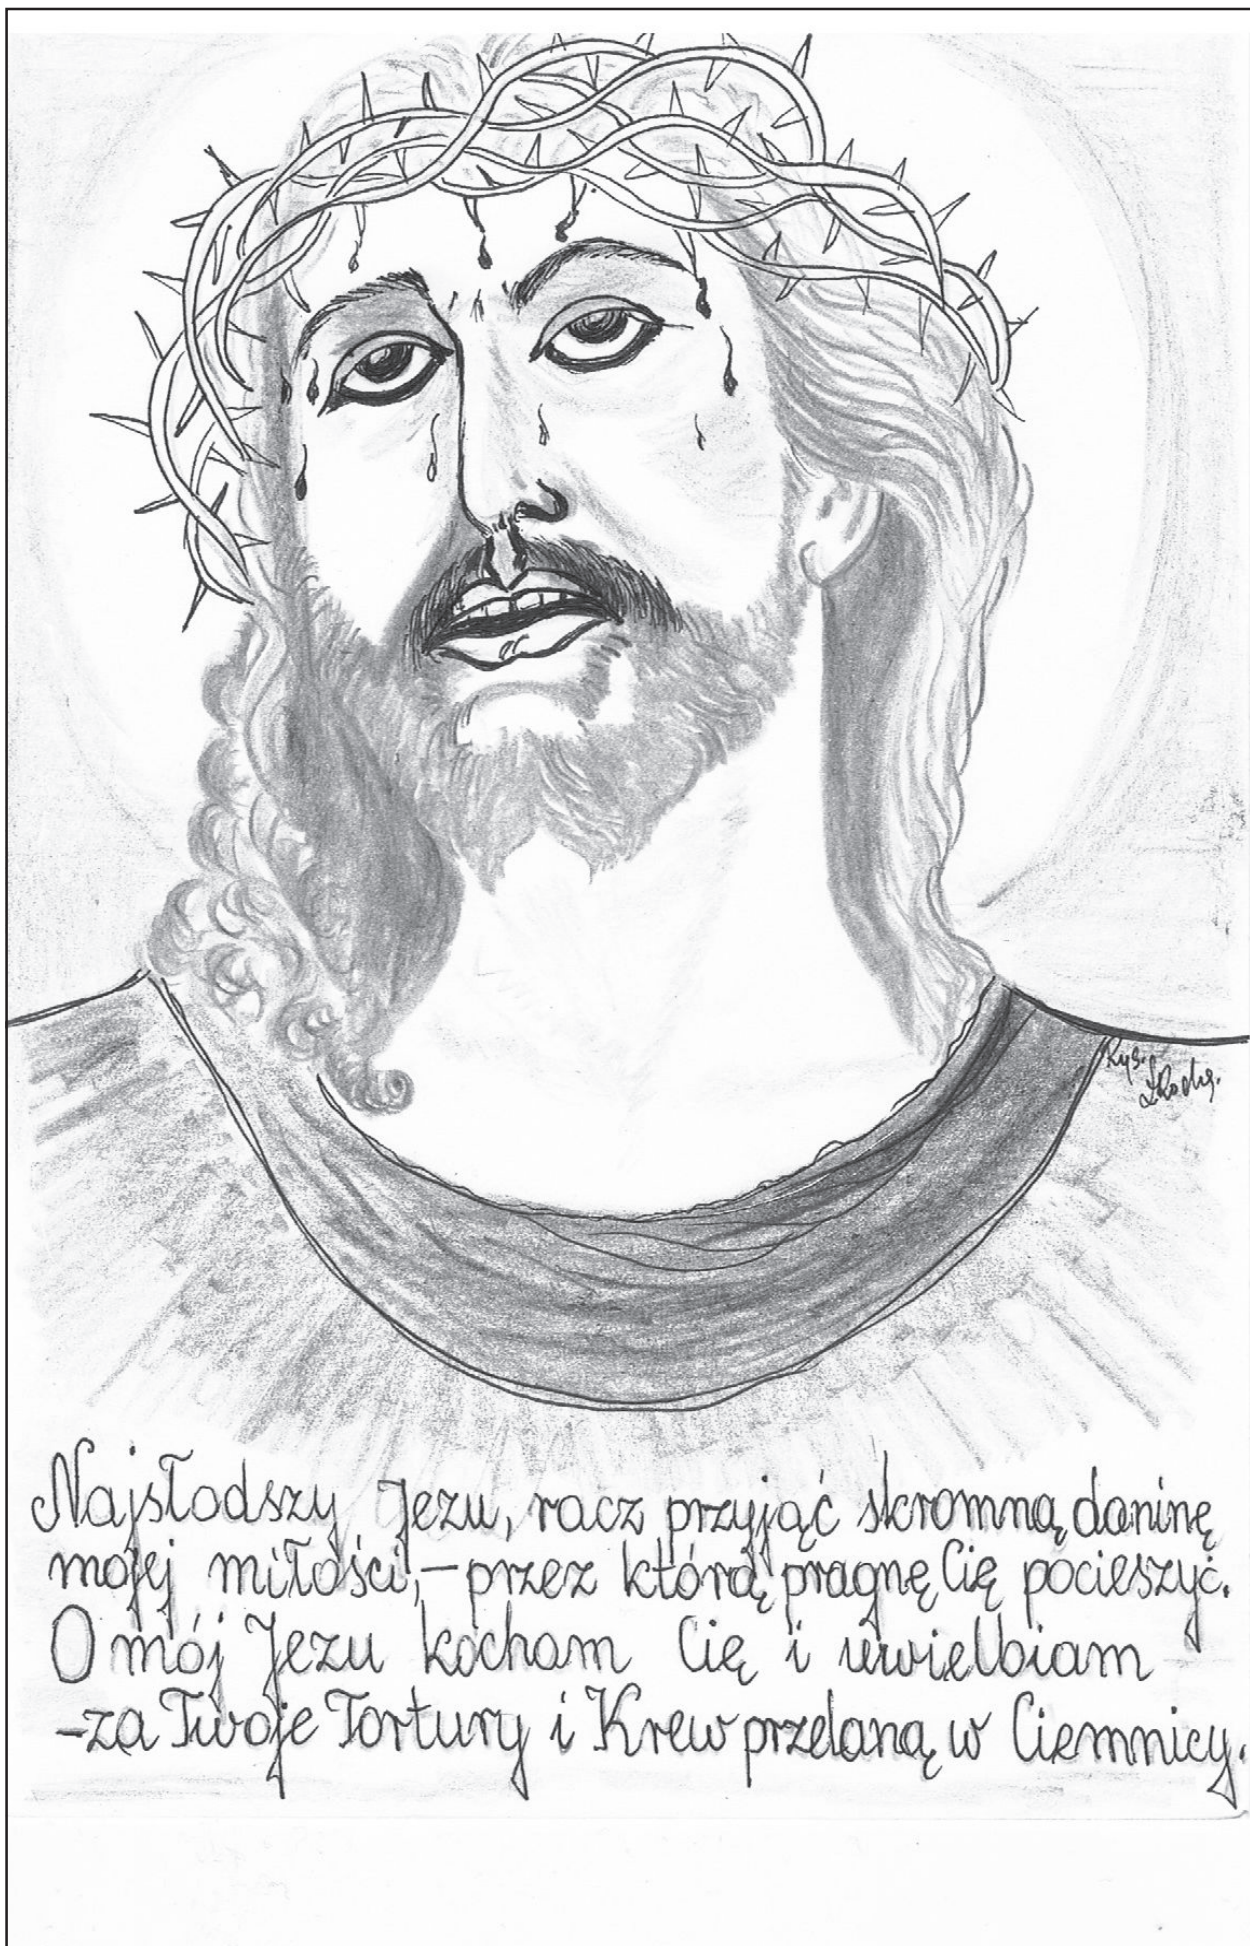 Rys.
Najsłodszy Jezu, racz przyjąć skromną daninę
mojej miłości, – przez którą pragnę Cię pocieszyć.
O mój Jezu kocham Cię i uwielbiam
– za Twoje Tortury i Krew przelaną w Ciemnicy.